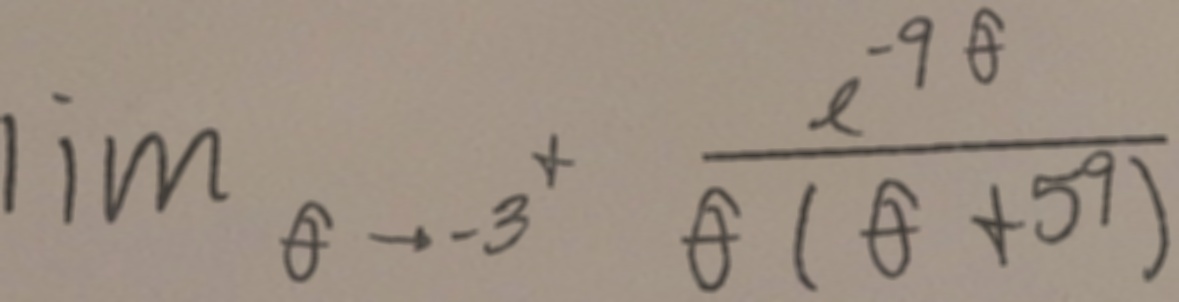 \lim_{\theta \to -3^+} \frac{e^{-9\theta}}{\theta(\theta + 59)}